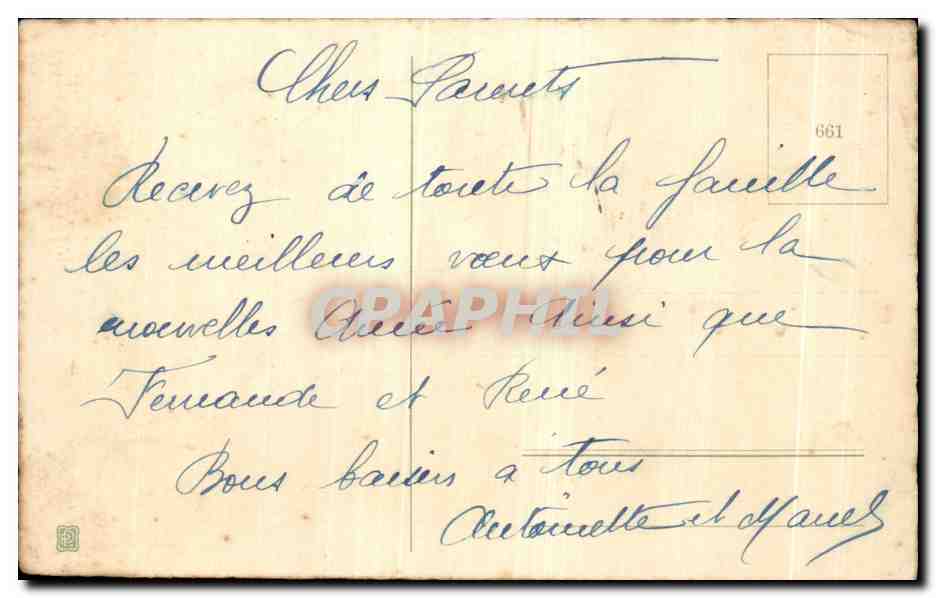 Chers Parents
661
Recevez de toute la famille
les meilleurs vœux pour la
nouvelles Année Ainsi que
CPAPHIL
Fernande et René
Bons baisers à tous
Antoinette et Marcel